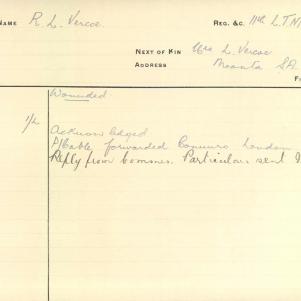 NAME R. L. Vercoe. REG. &C. 11th L.T.M
NEXT OF KIN Mrs L. Vercoe
ADDRESS Moonta S.A.
Wounded
Acknowledged
P/Cable forwarded Commrs London
Reply from Commrs. Particulars sent